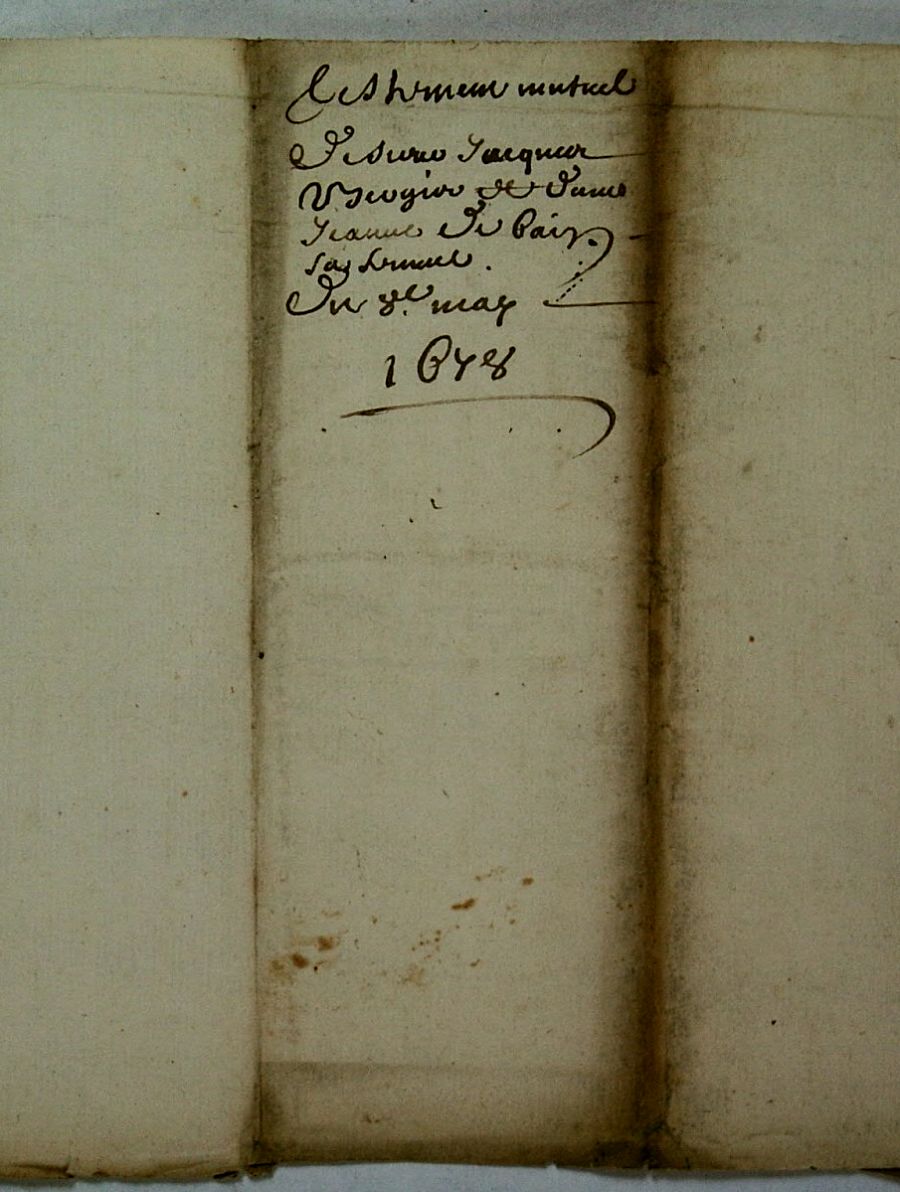 Testement mutuel
De sieur Jacques
Vergier et dame
Jeanne De Paix
sa femme.
Du 8.e may
1678